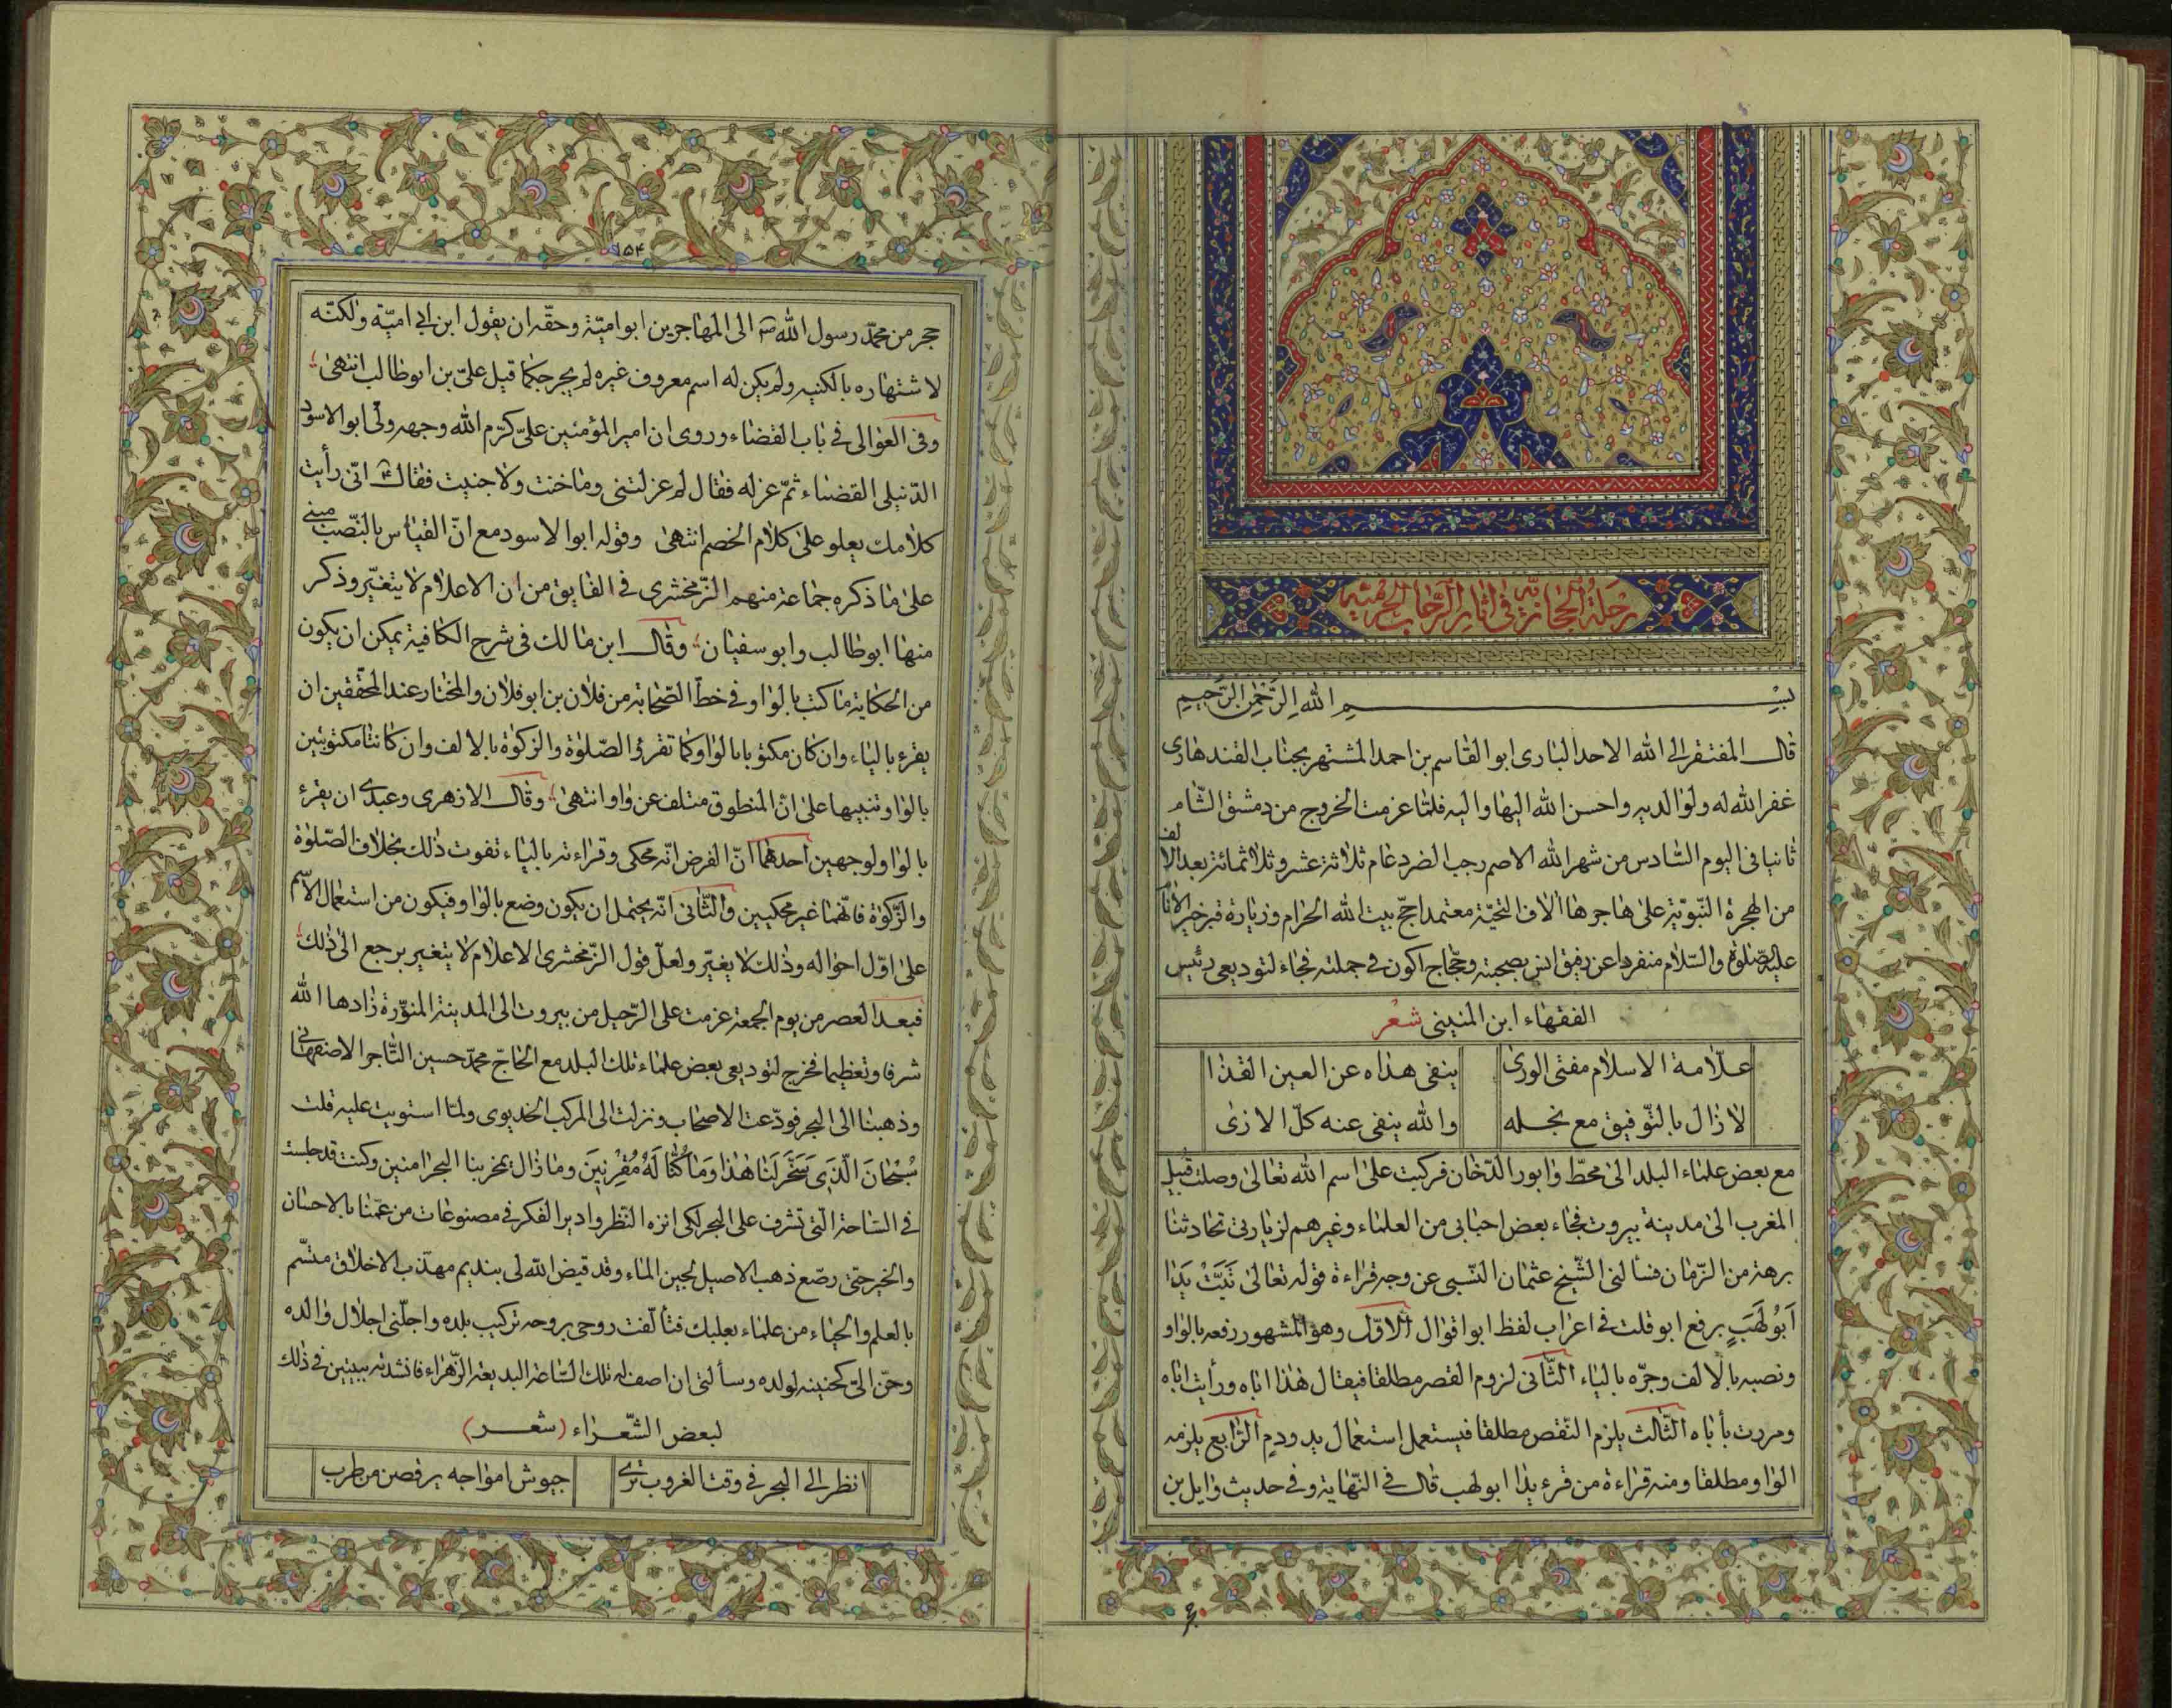 رحلة الحجازية في آثار الرحاب الحرمية
بسم الله الرحمن الرحيم
قال المفتقر الى الله الاحد البارى ابو القاسم بن احمد المشتهر بجناب القندهارى
غفر الله له ولوالديه واحسن الله اليها واليه فلما عزمت الخروج من دمشق الشام
ثانيا فى اليوم السادس من شهر الله الاصم رجب الفرد عام ثلاثة عشر وثلاثمائة بعد الالف
من الهجرة النبوية على هاجرها آلاف التحية معتمدا حج بيت الله الحرام وزيارة قبر خير الانام
عليه الصلوة والسلام منفردا عن رفيق انس بصحبته وحجاج اكون فى جملته فجاء لتوديعى رئيس
الفقهاء ابن المنينى شعر
علامة الاسلام مفتى الورى ينفى هداه عن العين القذا
لا زال بالتوفيق مع نجله والله ينفى عنه كل الاذى
مع بعض علماء البلد الى محط وابور الدخان فركبت على اسم الله تعالى وصلت قبيل
المغرب الى مدينة بيروت فجاء بعض احبابى من العلماء وغيرهم لزيارتى تحادثنا
برهة من الزمان فسألنى الشيخ عثمان عن وجه قراءة قوله تعالى تَبَّتْ يَدَا
اَبُو لَهَبٍ برفع ابو قلت فى اعراب لفظ ابو اقوال الاول وهو المشهور رفعه بالواو
ونصبه بالالف وجره بالياء الثانى لزوم القصر مطلقا فيقال هذا اباه ورأيت اباه
ومررت بأباه الثالث يلزم النقص مطلقا فيستعمل استعمال يد ودم الرابع يلزمه
الواو مطلقا ومنه قراءة من قرء يدا ابو لهب قال فى النهاية وفى حديث وايل بن
۱۵۴
حجر من محمد رسول الله ص الى المهاجرين ابو امية وحقه ان يقول ابن ابى امية ولكنه
لاشتهاره بالكنيه ولم يكن له اسم معروف غيره لم يجر كما قيل على بن ابو طالب انتهى
وفى العوالى فى باب القضاء وروى ان امير المؤمنين على كرم الله وجهه ولى ابو الاسود
الدئيلى القضاء ثم عزله فقال لم عزلتنى وما خنت ولا جنيت فقال ع انى رأيت
كلامك يعلو على كلام الخصم انتهى وقوله ابو الاسود مع ان القياس بالنصب مبنى
على ما ذكره جماعة منهم الزمخشرى فى الفايق من ان الاعلام لا يتغير وذكر
منها ابو طالب وابو سفيان وقال ابن مالك فى شرح الكافية يمكن ان يكون
من الحكاية ما كتب بالواو فى خط الصحابة من فلان بن ابو فلان والمختار عند المحققين ان
يقرء بالياء وان كان مكتوبا بالواو كما تقرئ الصلوة والزكوة بالالف وان كانتا مكتوبتين
بالواو تنبيها على ان المنطوق منقلب عن واو انتهى وقال الازهرى وعندى ان يقرء
بالواو لوجهين احدهما ان الفرض انه محكى وقراءته بالياء تفوت ذلك بخلاف الصلوة
والزكوة فانهما غير محكيين والثانى انه يحتمل ان يكون وضع بالواو فيكون من استعمال الاسم
على اول احواله وذلك لا يغير ولعل قول الزمخشرى الاعلام لا يتغير يرجع الى ذلك
فبعد العصر من يوم الجمعة عزمت على الرحيل من بيروت الى المدينة المنورة زادها الله
شرفا وتعظيما فخرج لتوديعى بعض علماء تلك البلد مع الحاج محمد حسين التاجر الاصفهانى
وذهبنا الى البحر فودعت الاصحاب ونزلت الى المركب الخديوى ولما استويت عليه قلت
سُبْحَانَ الَّذِى سَخَّرَ لَنَا هٰذَا وَمَا كُنَّا لَهُ مُقْرِنِينَ وما زال يمخر بنا البحر امنين وكنت قد جلست
فى الساحة التى تشرف على البحر لكى انزه النظر وادير الفكر فى مصنوعات من عمنا بالاحسان
والخير حتى رصع ذهب الاصيل لجين الماء وقد قيض الله لى بنديم مهذب الاخلاق متسم
بالعلم والحياء من علماء بعلبك فتألفت روحى بروحه تركيب بلده واجلنى اجلال والده
وحن الى كحنينه لولده وسألنى ان اصف له تلك الساعة البديعة الزهراء فانشدته بيتين فى ذلك
لبعض الشعراء (شعر)
انظر الى البحر فى وقت الغروب ترى جيوش امواجه يرقصن من طرب